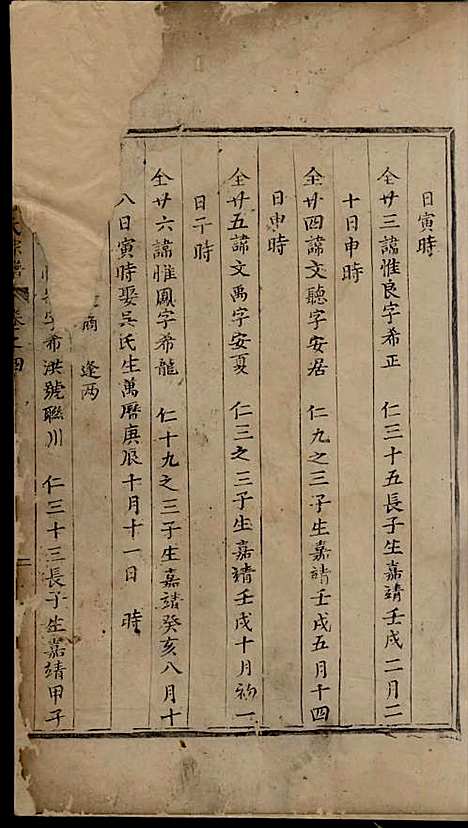 日寅時
仝廿三諱惟良字希正 仁三十五長子生嘉靖壬戌二月二
十日申時
仝廿四諱文聽字安居 仁九之三子生嘉靖壬戌五月十四
日申時
仝廿五諱文禹字安夏 仁三之三子生嘉靖壬戌十月初一
日子時
仝廿六諱惟鳳字希龍 仁十九之三子生嘉靖癸亥八月十
八日寅時娶吳氏生萬曆庚辰十月十一日 時
商 逢两
字希洪號聯川 仁三十三長子生嘉靖甲子
氏宗譜 卷之四